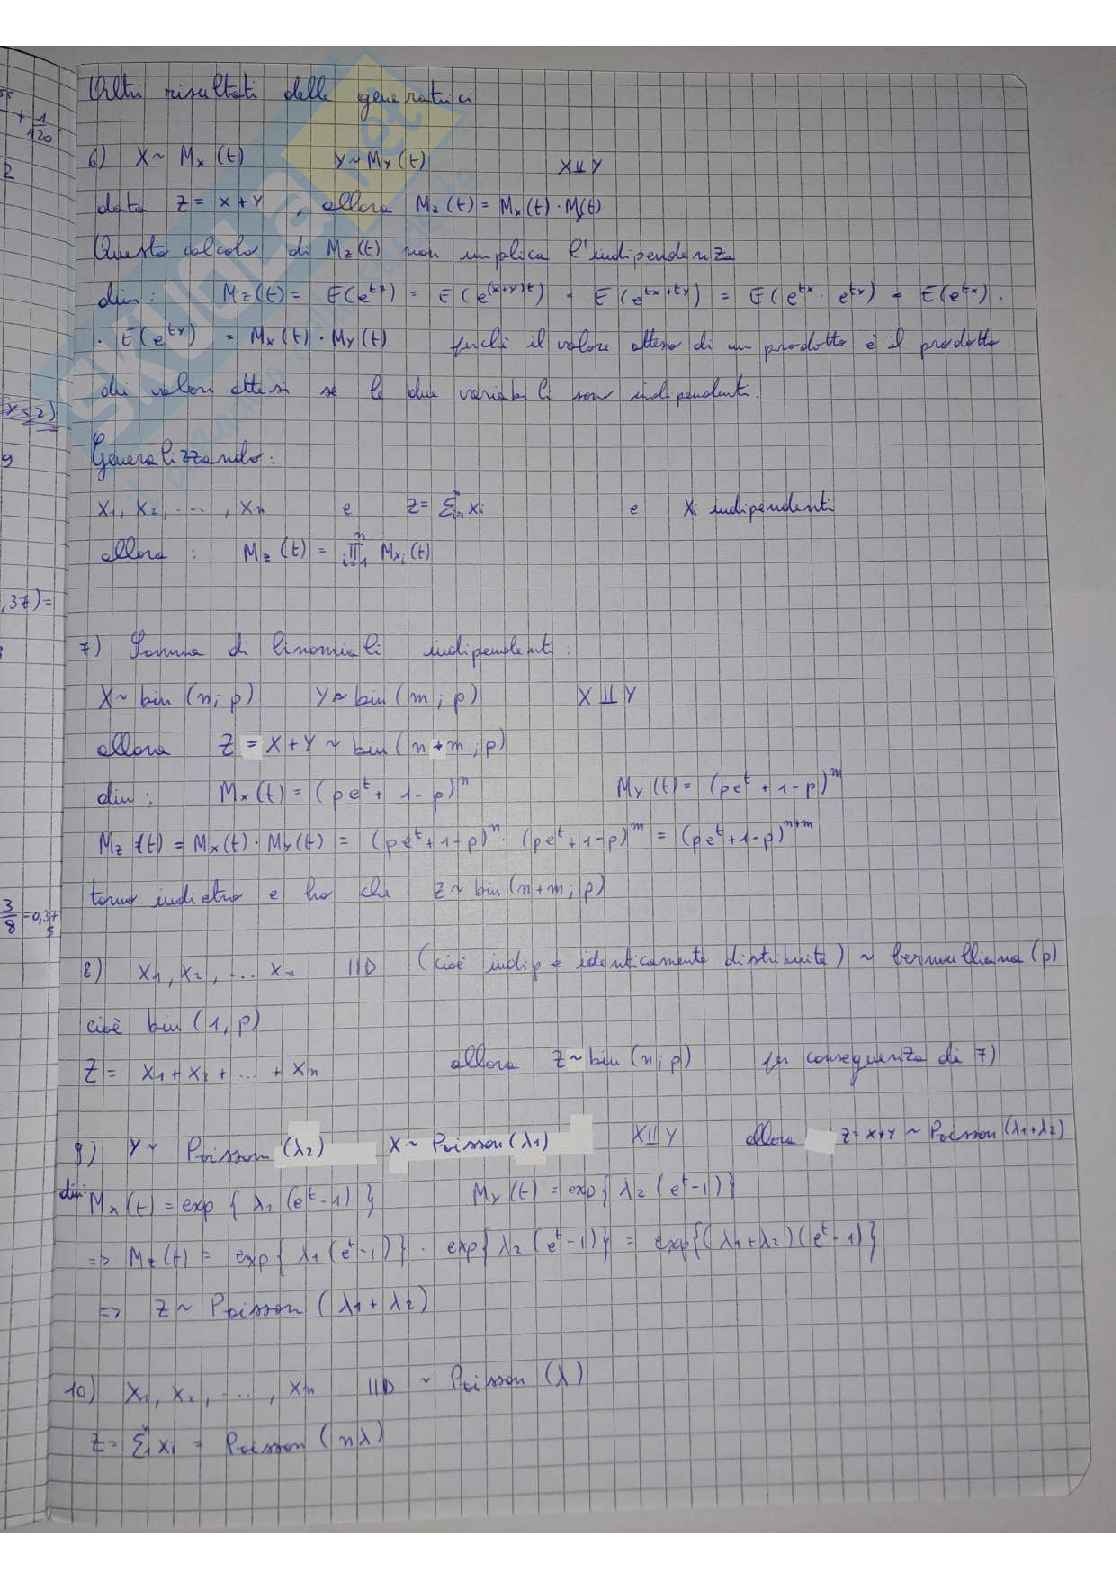 Altri risultati delle generatrici
6) X ~ Mx (t) Y ~ My (t) X ⫫ Y
data Z = X + Y , allora Mz (t) = Mx (t) · My(t)
Questo calcolo di Mz(t) non implica l'indipendenza
dim : Mz(t) = E(e^tz) = E(e^(x+y)t) = E(e^tx+ty) = E(e^tx · e^ty) = E(e^tx) ·
· E(e^ty) = Mx(t) · My(t) perché il valore atteso di un prodotto è il prodotto
dei valori attesi se le due variabili son indipendenti.
Generalizzando:
X1, X2, ..., Xn e Z = Σ Xi e Xi indipendenti
allora : Mz (t) = ∏ i=1 n Mxi (t)
7) Somma di binomiali indipendenti :
X ~ bin (n; p) Y ~ bin (m; p) X ⫫ Y
allora Z = X + Y ~ bin (n+m; p)
dim : Mx (t) = (pe^t + 1-p)^n My (t) = (pe^t + 1-p)^m
Mz (t) = Mx(t) · My(t) = (pe^t + 1-p)^n · (pe^t + 1-p)^m = (pe^t + 1-p)^n+m
torno indietro e ho che Z ~ bin (n+m; p)
8) X1, X2, ... Xn IID (cioè indip e identicamente distribuite) ~ bernulliana (p)
cioè bin (1, p)
Z = X1 + X2 + ... + Xn allora Z ~ bin (n; p) per conseguenza di 7)
9) Y ~ Poisson (λ2) X ~ Poisson (λ1) X ⫫ Y allora Z = X+Y ~ Poisson (λ1+λ2)
dim Mx (t) = exp { λ1 (e^t - 1) } My (t) = exp { λ2 (e^t - 1) }
=> Mz (t) = exp { λ1 (e^t - 1) } · exp { λ2 (e^t - 1) } = exp {(λ1+λ2) (e^t - 1) }
=> Z ~ Poisson (λ1 + λ2)
10) X1, X2, ..., Xn IID ~ Poisson (λ)
Z = Σ Xi = Poisson (nλ)
+ 1/120
2
Y≤2)
9
,37)=
3/8 = 0,37
5